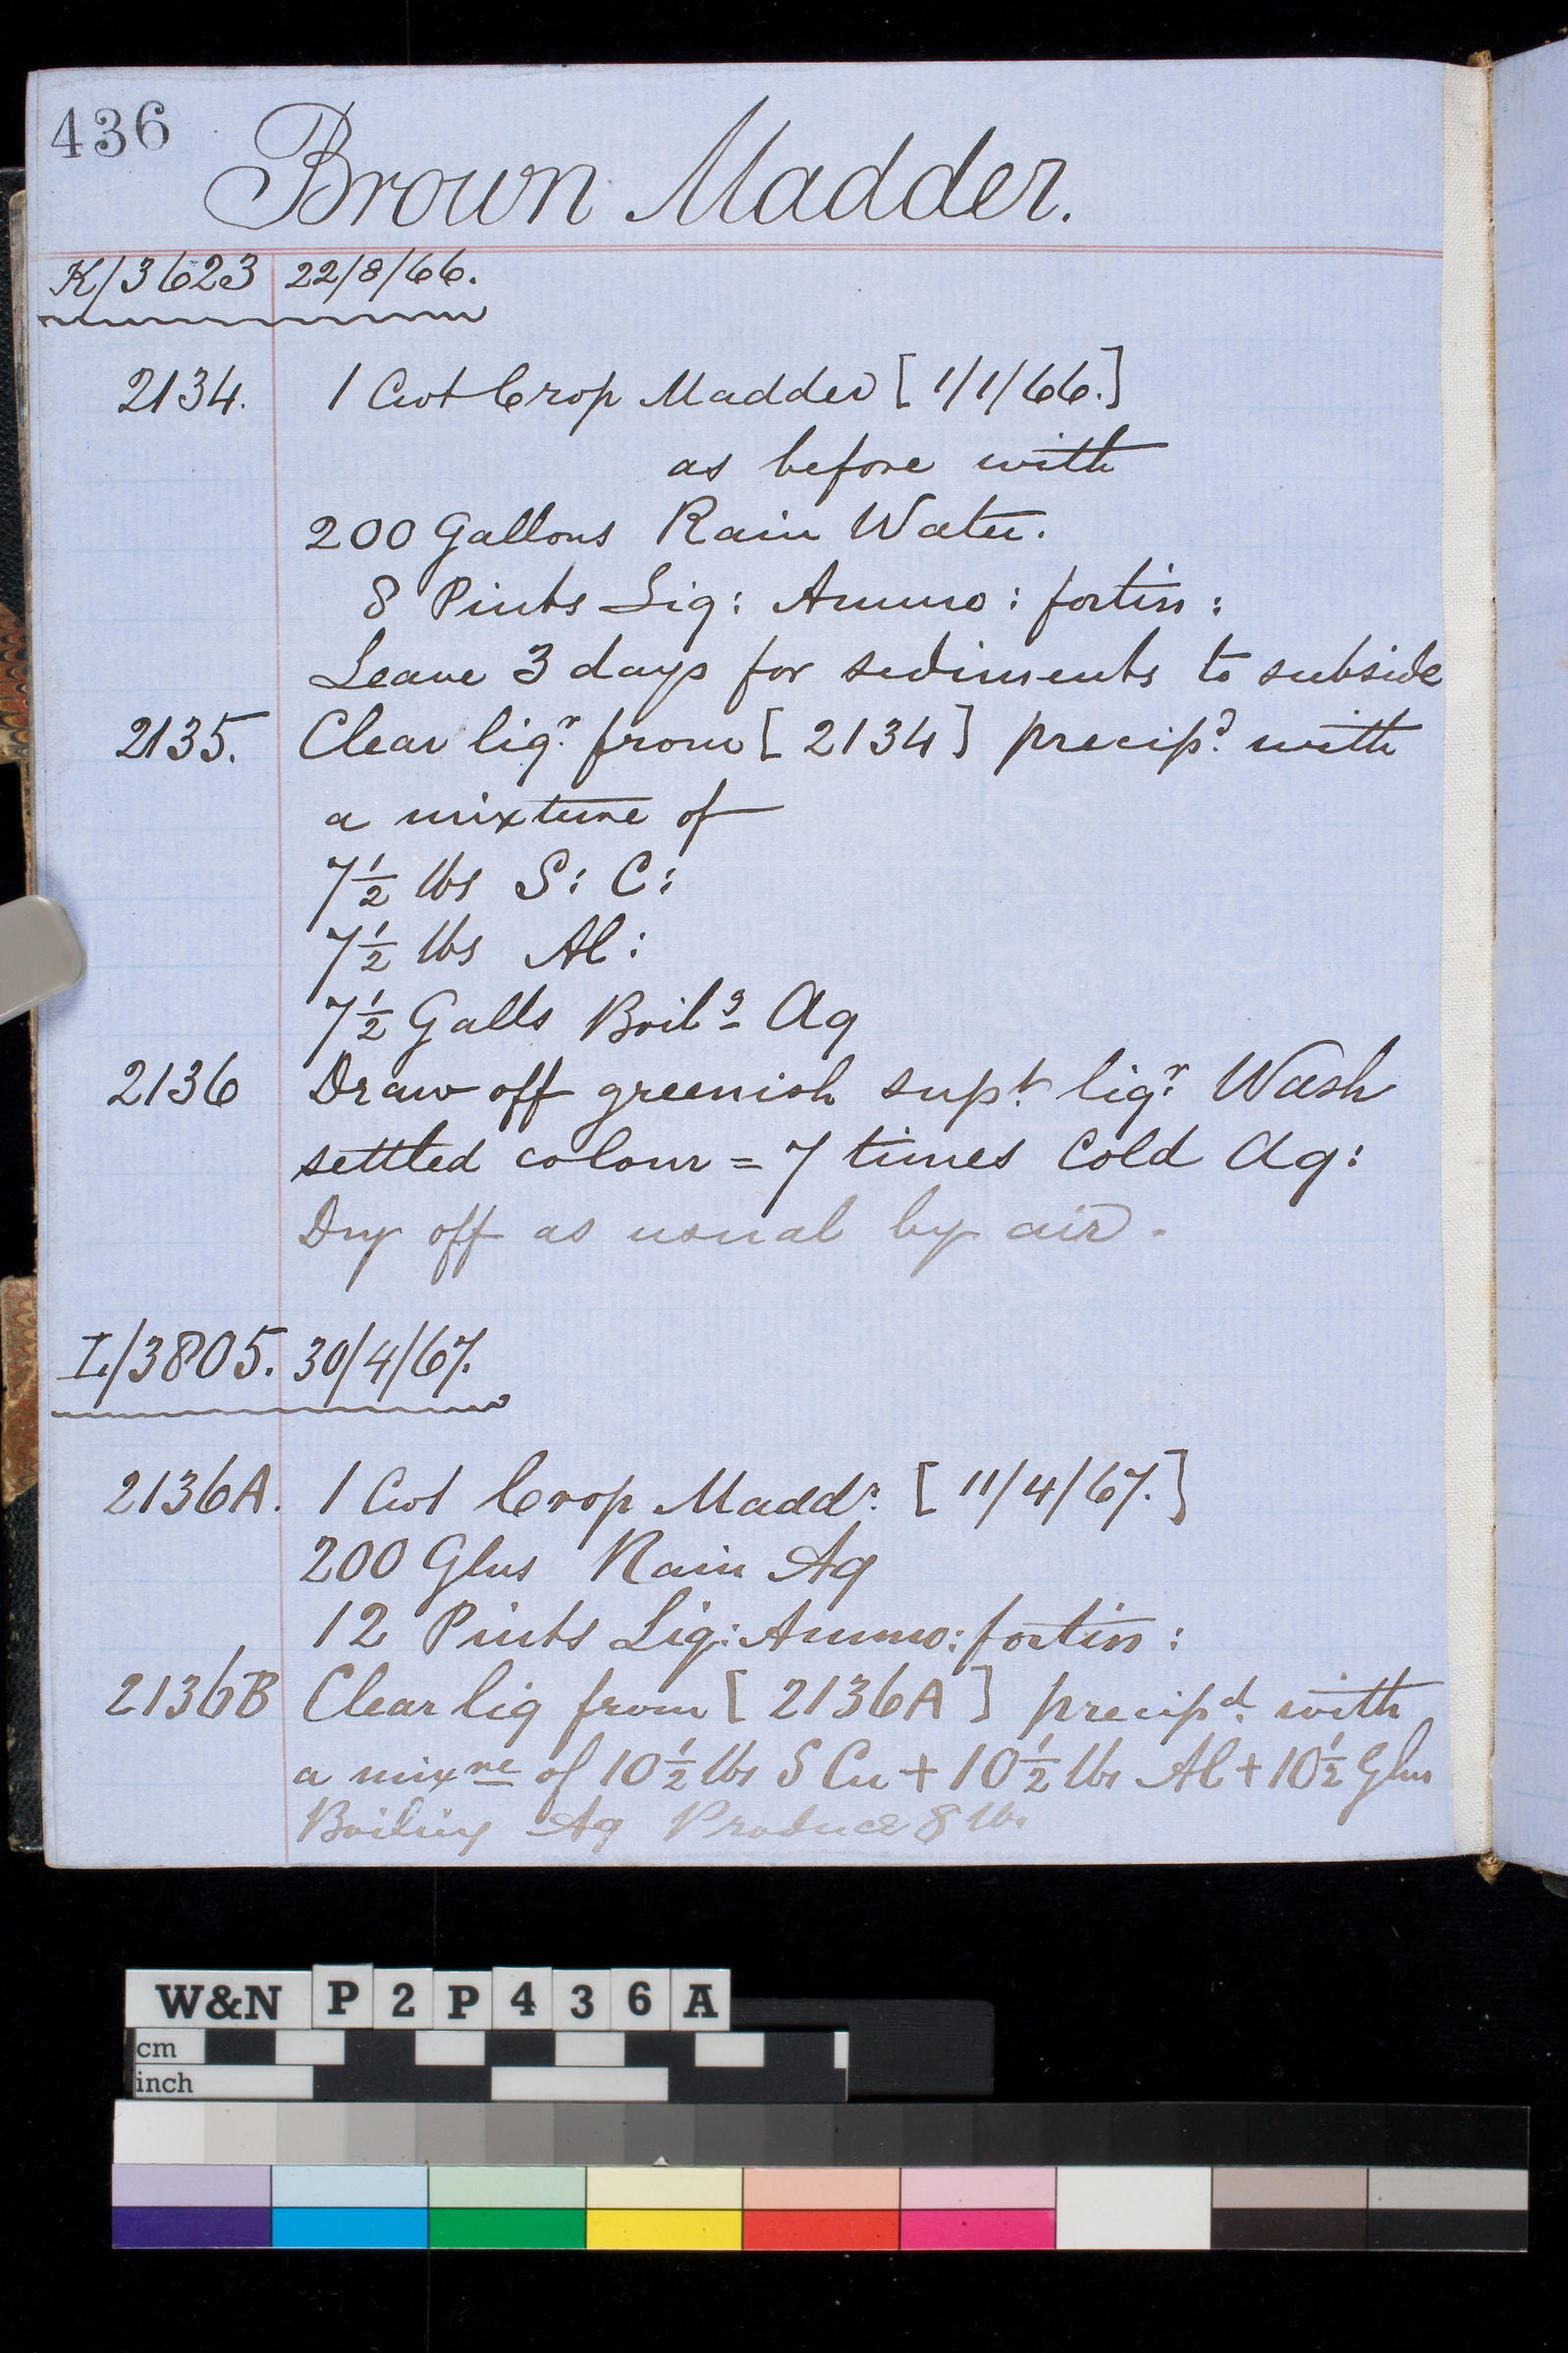 436
Brown Madder.
K/3623 22/8/66.
2134. 1 Cwt Crop Madder [1/1/66.]
as before with
200 Gallons Rain Water.
8 Pints Liq: Ammo: fortiss:
Leave 3 days for sediments to subside
2135. Clear liqr. from [2134] precipd. with
a mixture of
7½ lbs S: C:
7½ lbs Al:
7½ Galls Boilg Aq
2136 Draw off greenish supt. liqr. Wash
settled colour = 7 times Cold Aq:
Dry off as usual by air.
L/3805. 30/4/67.
2136A. 1 Cwt Crop Maddr. [11/4/67.]
200 Glns Rain Aq
12 Pints Liq: Ammo: fortiss:
2136B Clear liq from [2136A] precipd. with
a mixre of 10½ lbs S Cu + 10½ lbs Al + 10½ Glns
Boiling Aq Produce 8 lbs
W&N P2P436A
cm
inch